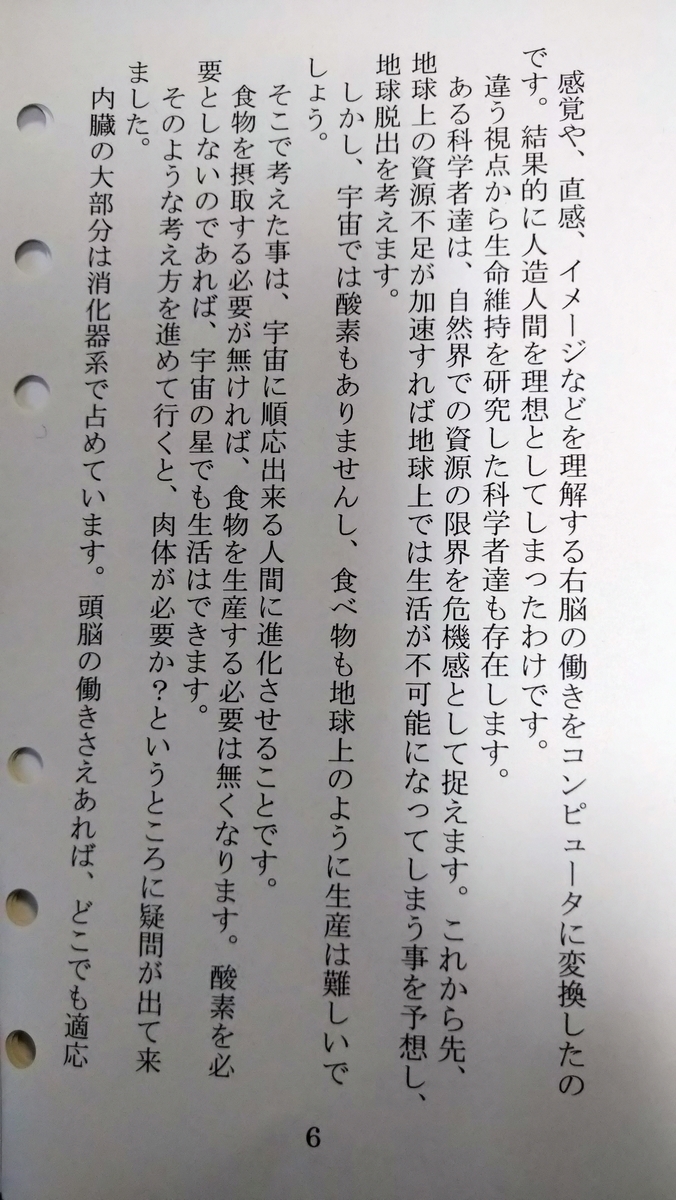 感覚や、直感、イメージなどを理解する右脳の働きをコンピュータに変換したの
です。結果的に人造人間を理想としてしまったわけです。
違う視点から生命維持を研究した科学者達も存在します。
ある科学者達は、自然界での資源の限界を危機感として捉えます。これから先、
地球上の資源不足が加速すれば地球上では生活が不可能になってしまう事を予想し、
地球脱出を考えます。
しかし、宇宙では酸素もありませんし、食べ物も地球上のように生産は難しいで
しょう。
そこで考えた事は、宇宙に順応出来る人間に進化させることです。
食物を摂取する必要が無ければ、食物を生産する必要は無くなります。酸素を必
要としないのであれば、宇宙の星でも生活はできます。
そのような考え方を進めて行くと、肉体が必要か?というところに疑問が出て来
ました。
内臓の大部分は消化器系で占めています。頭脳の働きさえあれば、どこでも適応
6